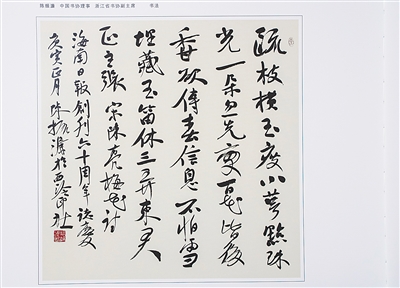 陈振濂 中国书协理事 浙江省书协副主席 书法
疏枝横玉瘦小萼點珠
光一朵忽先變百花皆後
香欲傳春信息不怕雪
埋藏玉笛休三弄東君
正主張 宋陳亮梅花诗
海南日报創刊六十周年誌慶
庚寅正月 陈振濂於西泠印社